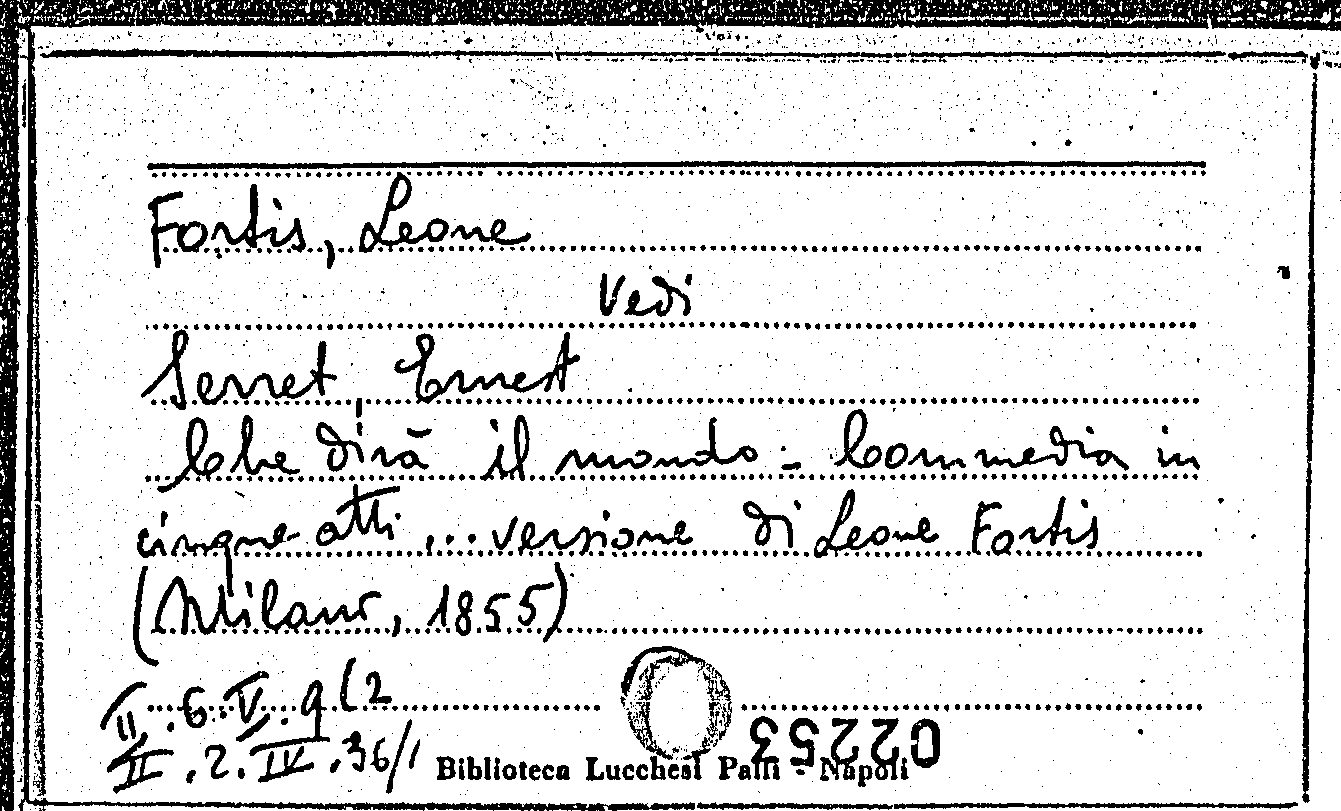 Fortis, Leone
Vedi
Serret, Ernest
Che dirà il mondo - Commedia in
cinque atti ... versione di Leone Fortis
(Milano, 1855)
II.6.V.9(2
II.2.IV.36/1
Biblioteca Lucchesi Palli - Napoli
02253